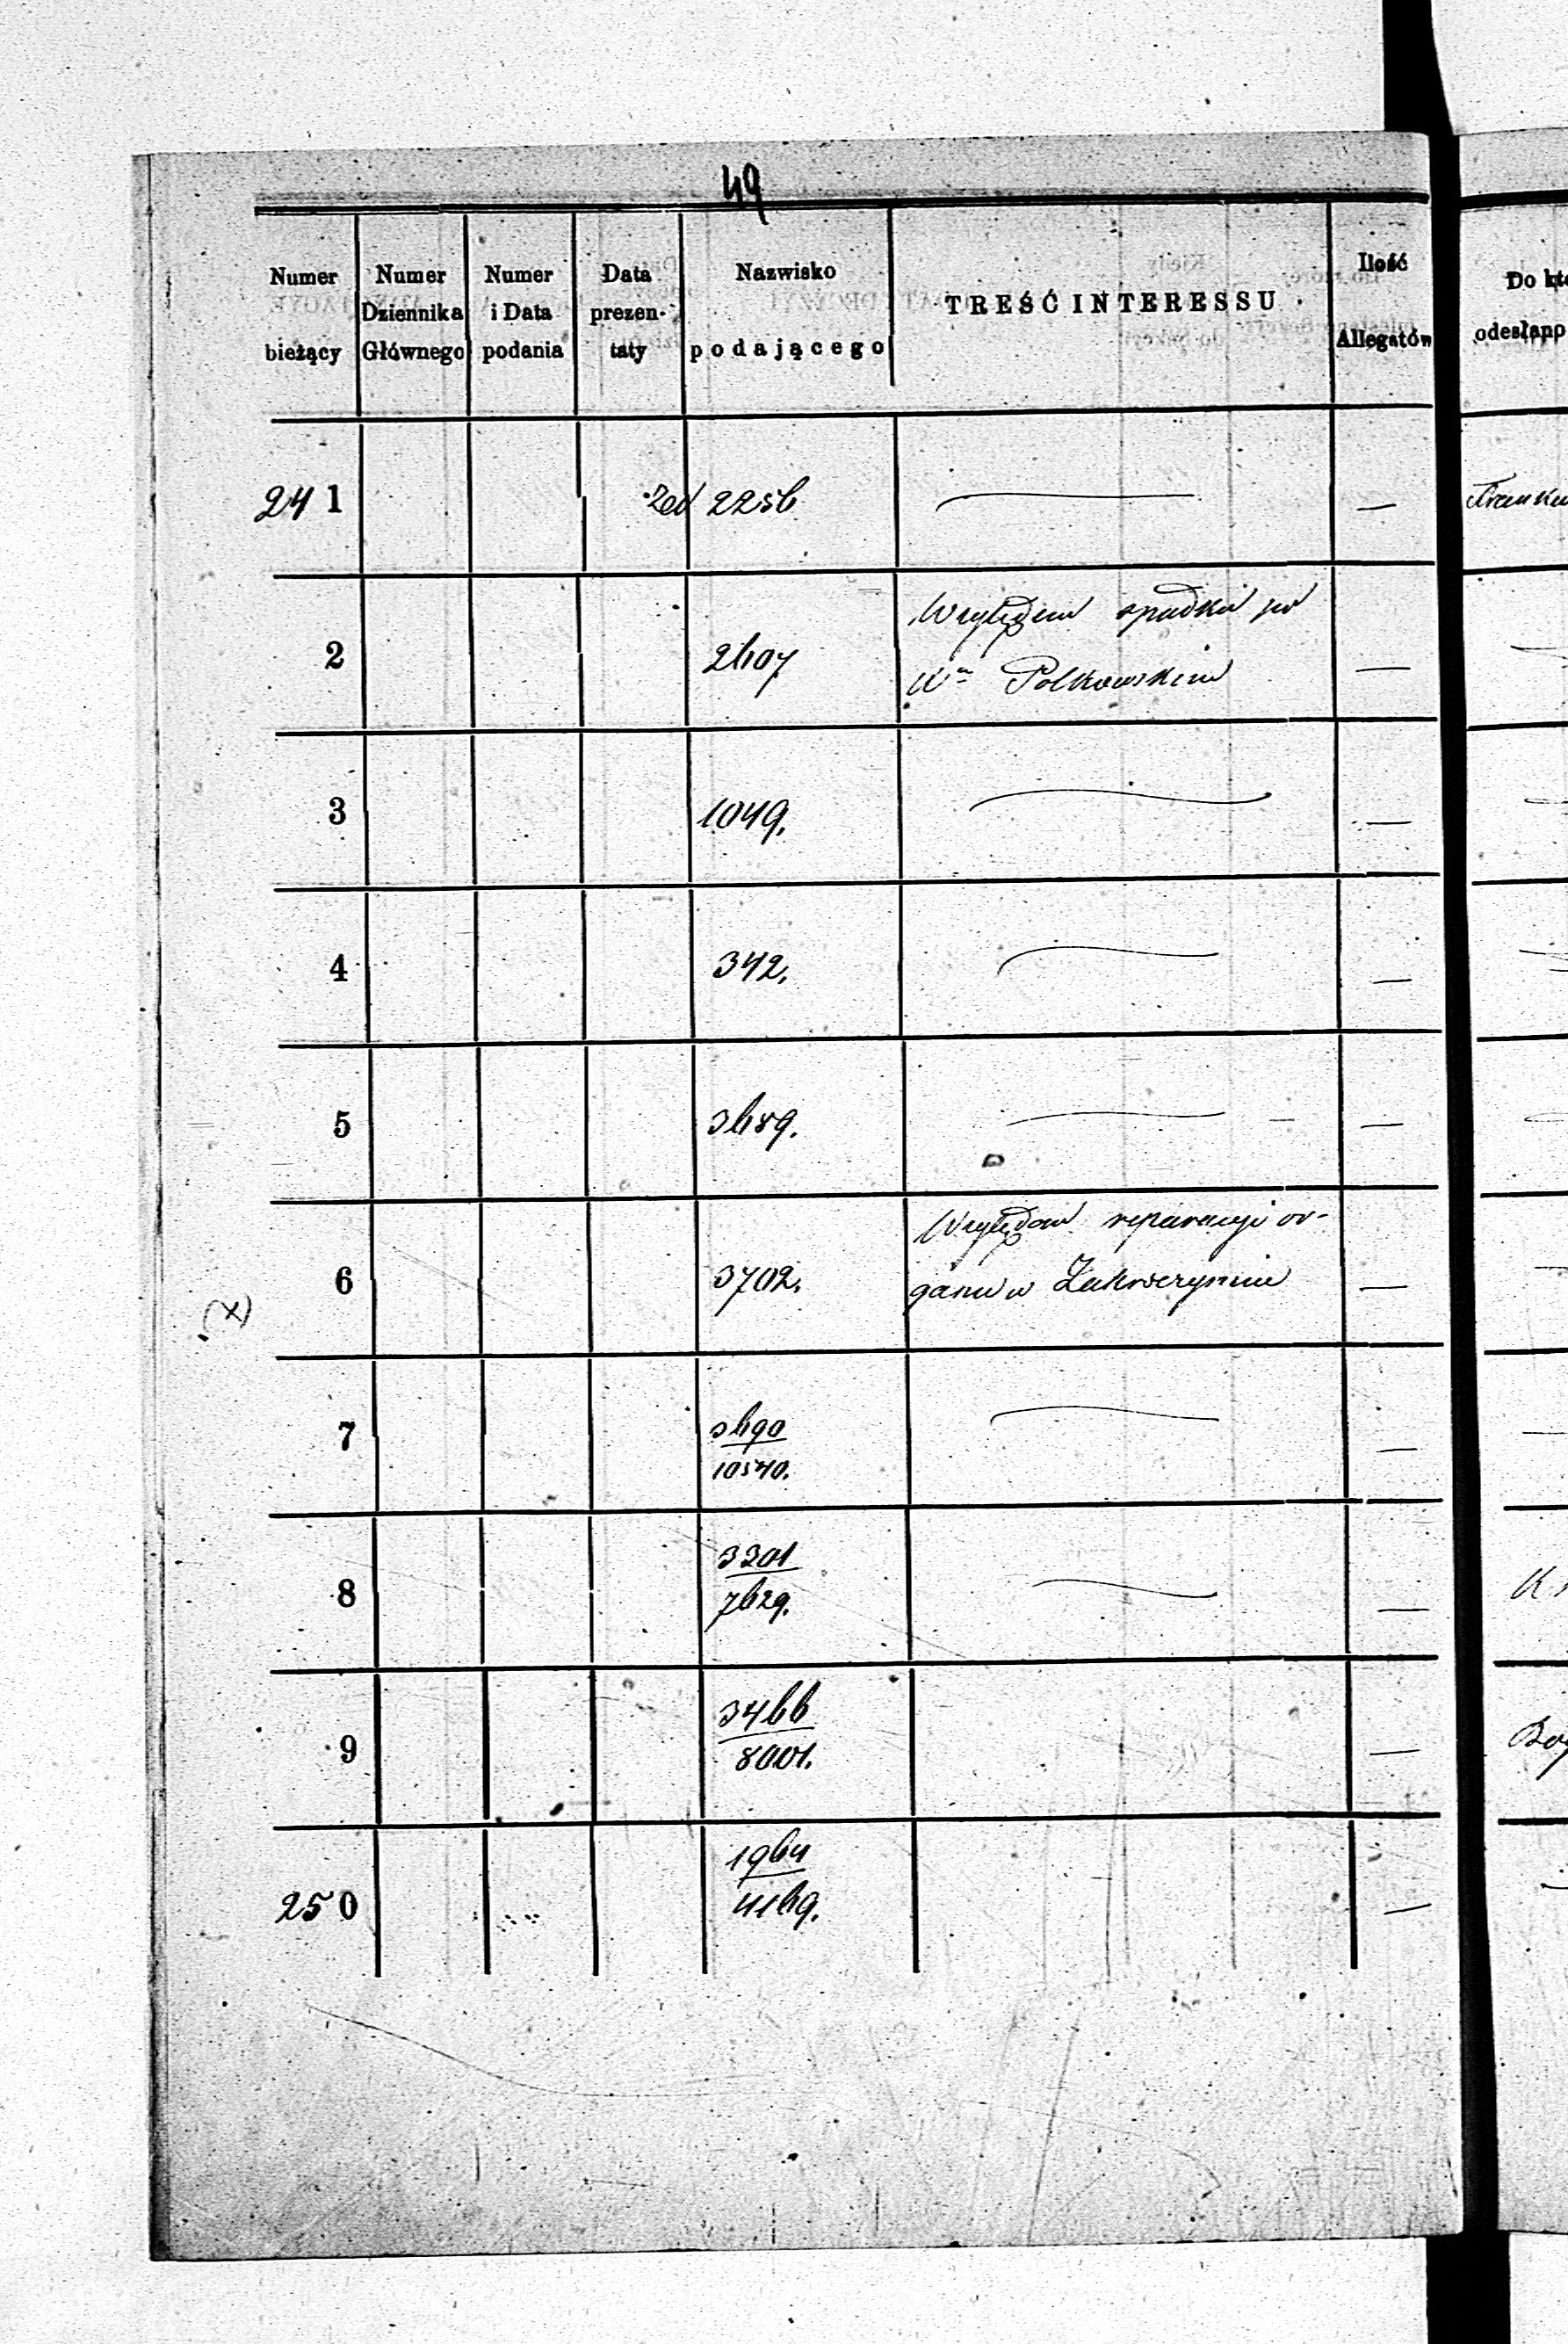 49
Numer bieżący | Numer Dziennika Głównego | Numer i Data podania | Data prezen- taty | Nazwisko podającego | TREŚĆ INTERESSU | Ilość Allegatów | Do odesłano
241 | 2256 | —
2 | 2607 | Względem spadku po | —
Kn Polkowskim
3 | 1049. | —
4 | 342. | —
5 | 3689. | —
6 | 3702. | Względem reparacyi or- | —
ganu w Zakroczymiu
(x)
7 | 3690 | —
10540.
8 | 3301 | —
7629.
9 | 3466 | —
8001.
250 | 1964 | —
4169.